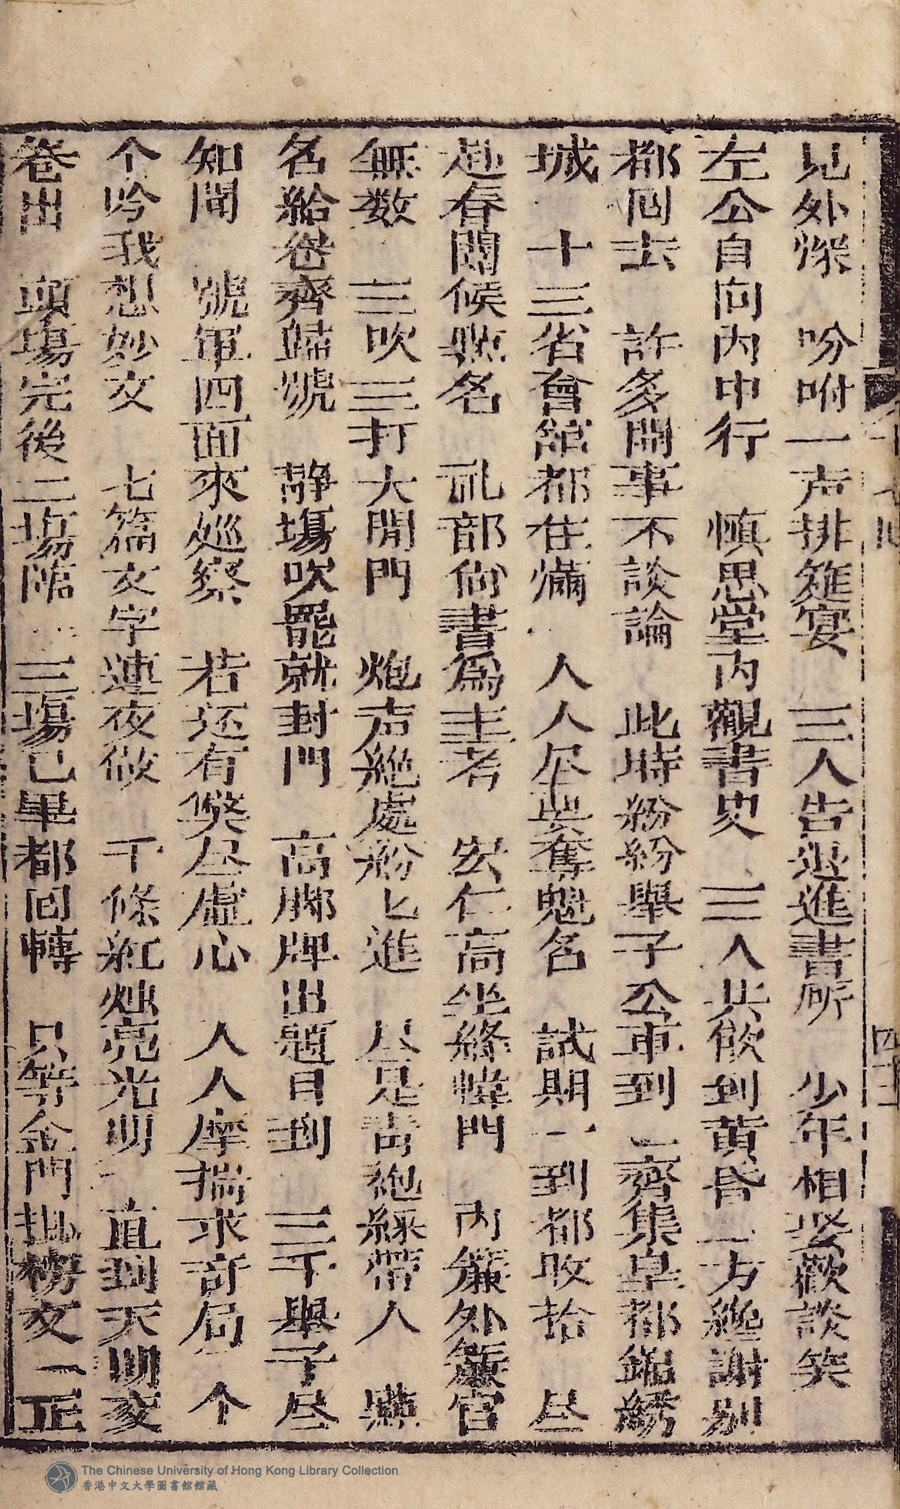 見外深　吩咐一声排筵宴　三人告退進書所　少年相娶歡談笑
左公自向内中行　慎思堂内觀書史　三人共飲到黄昏　二方絶謝别
都回去　許多閒事不談論　此時紛紛舉子公車到　一齊集皇都錦綉
城　十三省會舘都住滿　人人尽要奪魁名　試期一到都收拾　尽
赴春闈候點名　礼部尚書為主考　宏仁高坐絳幃門　内簾外簾官
無数　三吹三打大開門　炮声絶處紛匕進　尽是青袍緑帶人　點
名給卷齊歸號　静塲吹罷就封門　高脚牌出題目到　三千舉子尽
知聞　號軍四面來廵察　若还有獘尽虚心　人人摩揣求奇局　个
个吟我想妙文　七篇文字連夜做　千條紅燭亮光明　直到天明交
卷出　頭塲完後二塲隂　三塲已畢都回轉　只等金門掛榜文　一正
四十二
The Chinese University of Hong Kong Library Collection
香港中文大學圖書館館藏